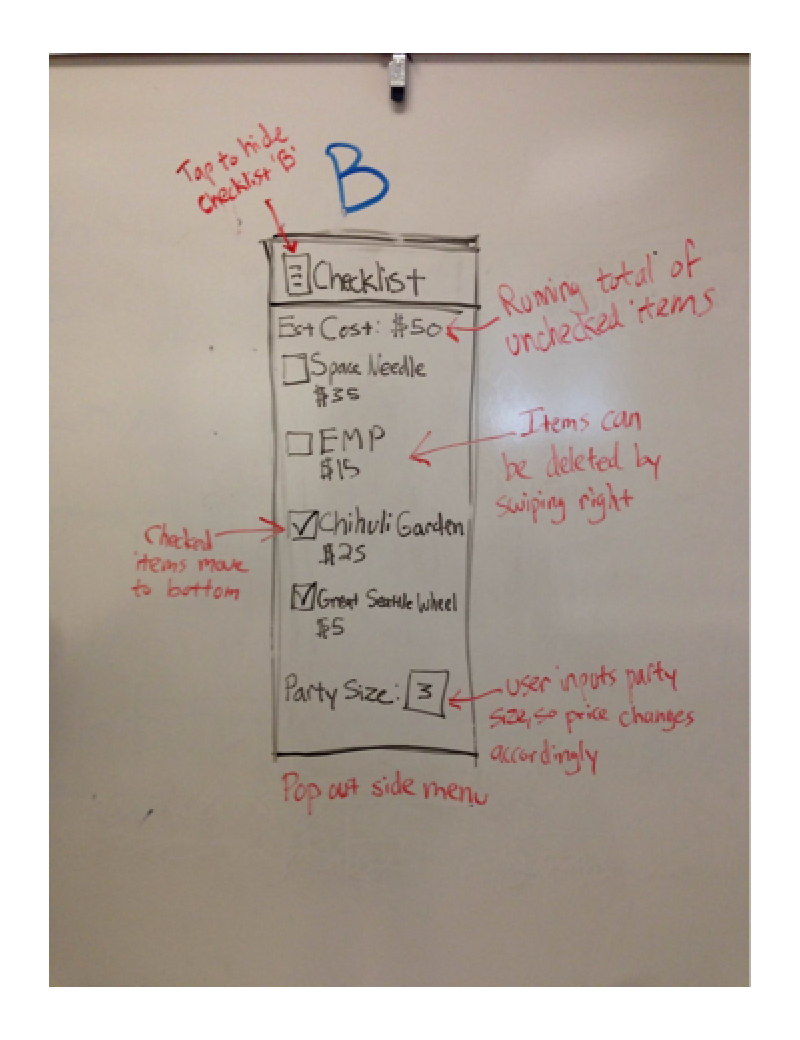 Tap to hide
Checklist 'B'
B
Checklist
Est Cost: $50
Running total of
unchecked items
Space Needle
$35
EMP
$15
Items can
be deleted by
swiping right
Checked
items move
to bottom
Chihuli Garden
$25
Great Seattle Wheel
$5
Party Size: 3
User inputs party
size, so price changes
accordingly
Pop out side menu